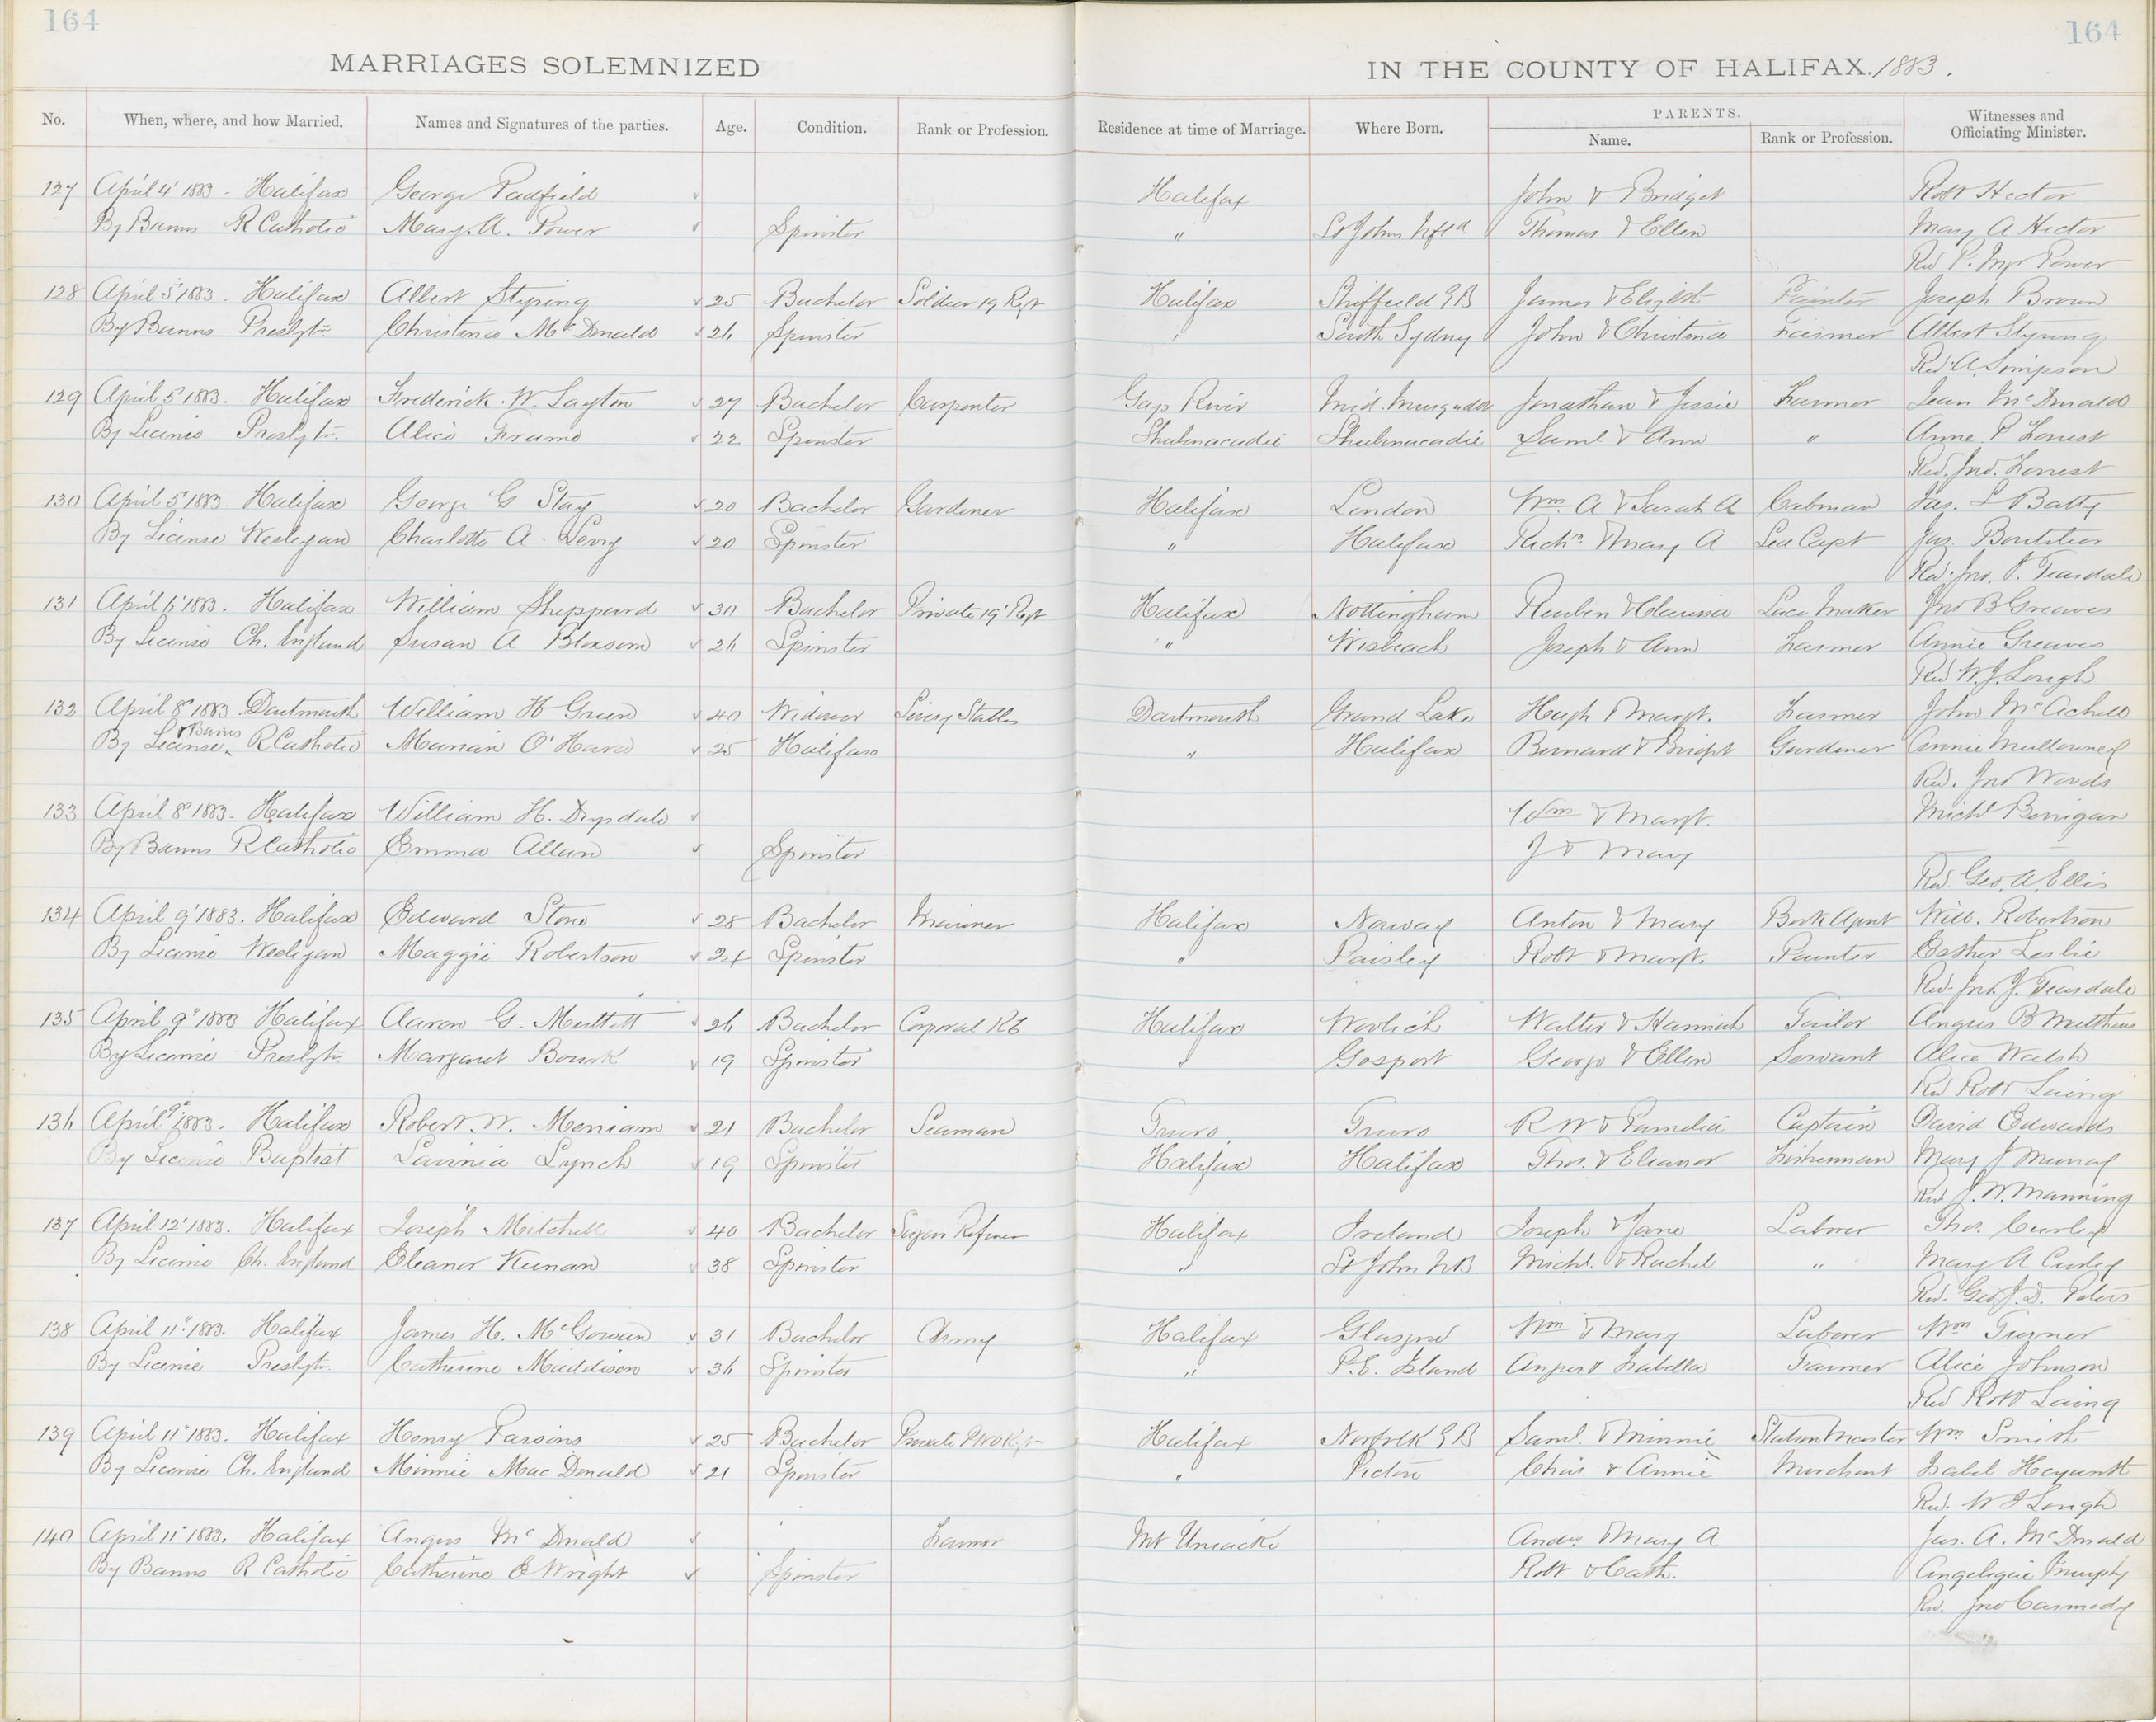 164
164
MARRIAGES SOLEMNIZED IN THE COUNTY OF HALIFAX. 1883.
No. When, where, and how Married. Names and Signatures of the parties. Age. Condition. Rank or Profession. Residence at time of Marriage. Where Born. PARENTS. Name. Rank or Profession. Witnesses and Officiating Minister.
127 April 4' 1883 - Halifax George Padfield Halifax John & Bridget Robt Hector
By Banns R Catholic Mary. A. Power Spinster " St Johns Nfld Thomas & Ellen Mary A Hector
Rev P. Power
128 April 5' 1883. Halifax Albert Styring 25 Bachelor Soldier 19 Regt Halifax Sheffield G B James & Elizbt Painter Joseph Brown
By Banns Presbytn. Christina McDonald 26 Spinster " South Sydney John & Christina Farmer Albert Styring
Rev. A. Simpson
129 April 5' 1883. Halifax Frederick. W. Layton 27 Bachelor Carpenter Gays River Mid. Jonathan & Jessie Farmer Jean McDonald
By License Presbytn. Alice Frame 22 Spinster Shubenacadie Shubenacadie Saml & Ann " Anne P Forrest
Rev. Jno. Forrest
130 April 5' 1883. Halifax George G Stay 20 Bachelor Gardener Halifax London Wm. A & Sarah A Cabman Jas. L Batty
By License Wesleyan Charlotte A. Levy 20 Spinster " Halifax Richd. & Mary A Sea Capt Jas. Boutilier
Rev. Jno. J. Teasdale
131 April 6' 1883. Halifax William Sheppard 30 Bachelor Private 19' Regt Halifax Nottingham Reuben & Clarissa Lace Maker Jno B Greaves
By License Ch. England Susan A Bloxsom 26 Spinster " Wisbeach Joseph & Ann Farmer Annie Greaves
Rev W. J. Lough
132 April 8' 1883. Dartmouth William H Green 40 Widower Livery Stables Dartmouth Grand Lake Hugh & Margt. Farmer John
By License & Banns R Catholic Marian O'Hara 25 Halifax " Halifax Bernard & Bridgt Gardener Annie Mullowney
Rev. Jno Woods
133 April 8' 1883. Halifax William H. Drysdale Wm & Margt. Michl
By Banns R Catholic Emma Allan Spinster J & Mary
Rev. Geo. A. Ellis
134 April 9' 1883. Halifax Edward Stone 28 Bachelor Mariner Halifax Norway Anton & Mary Book Agent Will. Robertson
By License Wesleyan Maggie Robertson 24 Spinster " Paisley Robt & Margt. Painter Esther Leslie
Rev. Jno. J. Teasdale
135 April 9' 1883 Halifax Aaron G. Mullett 26 Bachelor Corporal RE Halifax Woolich Walter & Hannah Tailor Angus B Matthews
By License Presbytn. Margaret Bourk 19 Spinster " Gosport George & Ellen Servant Alice Walsh
Rev Robt Laing
136 April 9' 1883. Halifax Robert. W. Merriam 21 Bachelor Seaman Truro Truro R W & Pamelia Captain David Edwards
By License Baptist Lavinia Lynch 19 Spinster Halifax Halifax Thos. & Eleanor Fisherman Mary J Murray
Rev J. W. Manning
137 April 12' 1883. Halifax Joseph Mitchell 40 Bachelor Sugar Refiner Halifax Ireland Joseph & Jane Laborer Thos. Curley
By License Ch. England Eleanor Keenan 38 Spinster " St John NB Michl. & Rachel " Mary A Curley
Rev. Geo J. D. Peters
138 April 11" 1883. Halifax James H. McGowan 31 Bachelor Army Halifax Glasgow Wm & Mary Laborer Wm Turner
By License Presbytn. Catherine Maddison 36 Spinster " P. E. Island Angus & Isabella Farmer Alice Johnson
Rev Robt Laing
139 April 11" 1883. Halifax Henry Parsons 25 Bachelor Private PWO Regt Halifax Norfolk G B Saml. & Minnie Station Master Wm. Smith
By License Ch. England Minnie MacDonald 21 Spinster " Pictou Chas. & Annie Merchant Isabel
Rev. W J Lough
140 April 11" 1883. Halifax Angus McDonald Farmer Mt Uniacke Andw. & Mary A Jas. A. McDonald
By Banns R Catholic Catherine E Wright Spinster Robt & Cath. Angelique Murphy
Rev. Jno Carmody